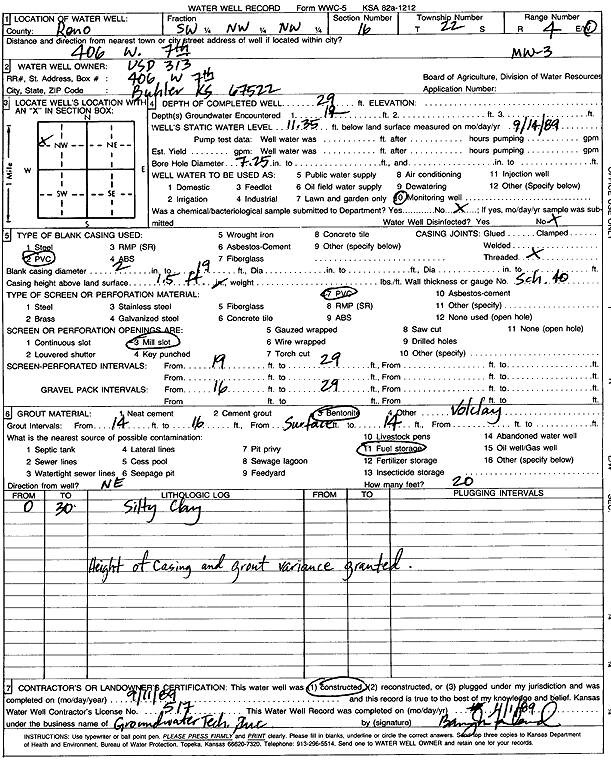 WATER WELL RECORD Form WWC-5 KSA 82a-1212
1 LOCATION OF WATER WELL: Fraction Section Number Township Number Range Number
County: Reno SW ¼ NW ¼ NW ¼ 16 T 22 S R 4 E/W
Distance and direction from nearest town or city street address of well if located within city?
406 W. 7th MW-3
2 WATER WELL OWNER: USD 313
RR#, St. Address, Box # : 406 W 7th Board of Agriculture, Division of Water Resources
City, State, ZIP Code : Buhler KS 67522 Application Number:
3 LOCATE WELL'S LOCATION WITH AN "X" IN SECTION BOX:
N
X NW NE
W E
SW SE
S
1 Mile
4 DEPTH OF COMPLETED WELL. 29 ft. ELEVATION:
Depth(s) Groundwater Encountered 1. ft. 2. ft. 3. ft.
WELL'S STATIC WATER LEVEL 11.35 ft. below land surface measured on mo/day/yr 9/14/89
Pump test data: Well water was ft. after hours pumping gpm
Est. Yield gpm: Well water was ft. after hours pumping gpm
Bore Hole Diameter 7.25 in. to ft., and in. to ft.
WELL WATER TO BE USED AS: 5 Public water supply 8 Air conditioning 11 Injection well
1 Domestic 3 Feedlot 6 Oil field water supply 9 Dewatering 12 Other (Specify below)
2 Irrigation 4 Industrial 7 Lawn and garden only 10 Monitoring well
Was a chemical/bacteriological sample submitted to Department? Yes No X ; If yes, mo/day/yr sample was submitted
Water Well Disinfected? Yes No X
5 TYPE OF BLANK CASING USED: 5 Wrought iron 8 Concrete tile CASING JOINTS: Glued Clamped
1 Steel 3 RMP (SR) 6 Asbestos-Cement 9 Other (specify below) Welded
2 PVC 4 ABS 7 Fiberglass Threaded X
Blank casing diameter 2 in. to 19 ft., Dia in. to ft., Dia in. to ft.
Casing height above land surface 1.5 ft in., weight lbs./ft. Wall thickness or gauge No. Sch. 40
TYPE OF SCREEN OR PERFORATION MATERIAL: 7 PVC 10 Asbestos-cement
1 Steel 3 Stainless steel 5 Fiberglass 8 RMP (SR) 11 Other (specify)
2 Brass 4 Galvanized steel 6 Concrete tile 9 ABS 12 None used (open hole)
SCREEN OR PERFORATION OPENINGS ARE: 5 Gauzed wrapped 8 Saw cut 11 None (open hole)
1 Continuous slot 3 Mill slot 6 Wire wrapped 9 Drilled holes
2 Louvered shutter 4 Key punched 7 Torch cut 10 Other (specify)
SCREEN-PERFORATED INTERVALS: From 19 ft. to 29 ft., From ft. to ft.
From ft. to ft., From ft. to ft.
GRAVEL PACK INTERVALS: From 16 ft. to 29 ft., From ft. to ft.
From ft. to ft., From ft. to ft.
6 GROUT MATERIAL: 1 Neat cement 2 Cement grout 3 Bentonite 4 Other Volclay
Grout Intervals: From 14 ft. to 16 ft., From Surface to 14 ft., From ft. to ft.
What is the nearest source of possible contamination: 10 Livestock pens 14 Abandoned water well
1 Septic tank 4 Lateral lines 7 Pit privy 11 Fuel storage 15 Oil well/Gas well
2 Sewer lines 5 Cess pool 8 Sewage lagoon 12 Fertilizer storage 16 Other (specify below)
3 Watertight sewer lines 6 Seepage pit 9 Feedyard 13 Insecticide storage
Direction from well? NE How many feet? 20
FROM TO LITHOLOGIC LOG FROM TO PLUGGING INTERVALS
0 30 Silty Clay
Height of Casing and grout variance granted.
7 CONTRACTOR'S OR LANDOWNER'S CERTIFICATION: This water well was (1) constructed, (2) reconstructed, or (3) plugged under my jurisdiction and was
completed on (mo/day/year) 9/11/89 and this record is true to the best of my knowledge and belief. Kansas
Water Well Contractor's License No. 517 This Water Well Record was completed on (mo/day/yr)
under the business name of Groundwater Tech, Inc by (signature)
INSTRUCTIONS: Use typewriter or ball point pen. PLEASE PRESS FIRMLY and PRINT clearly. Please fill in blanks, underline or circle the correct answers. Send top three copies to Kansas Department
of Health and Environment, Bureau of Water Protection, Topeka, Kansas 66620-7320. Telephone: 913-296-5514. Send one to WATER WELL OWNER and retain one for your records.